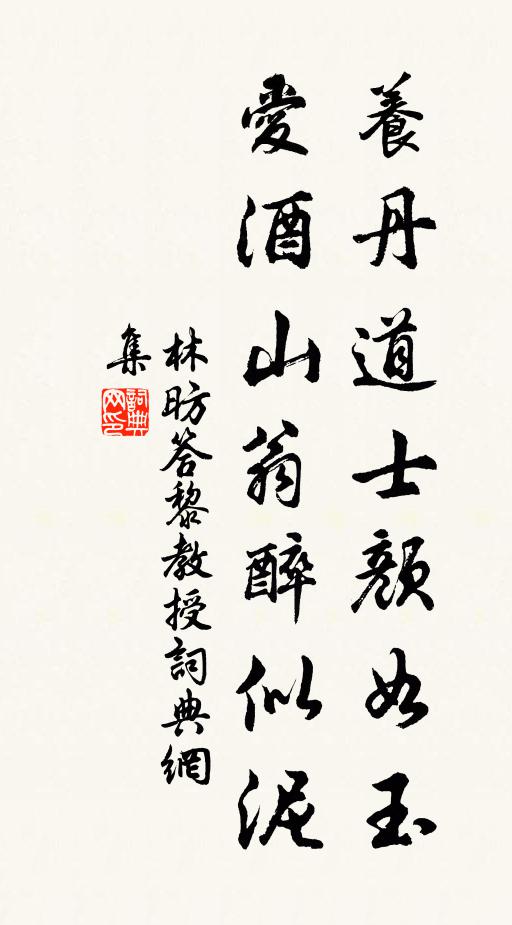 養丹道士顏如玉
愛酒山翁醉似泥
林昉答黎教授詞典網
集
詞典網印